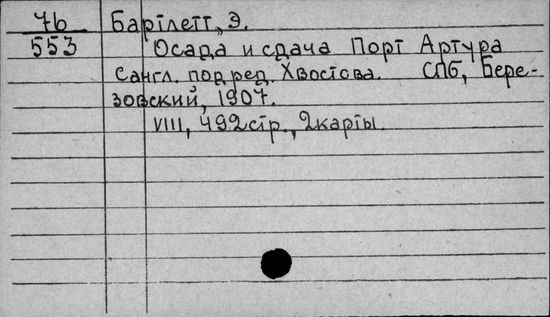 7б
553
Бартлетт, Э.
Осада и сдача Порт Артура
с англ. под ред. Хвостова. СПб, Бере-
зовский, 1907.
VIII, 492 стр., 2 карты.